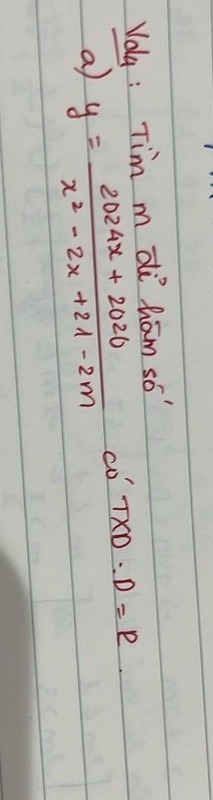 Vd4: Tìm m để hàm số
a) y = \frac{2024x + 2026}{x² - 2x + 21 - 2m} có TXD: D = R.